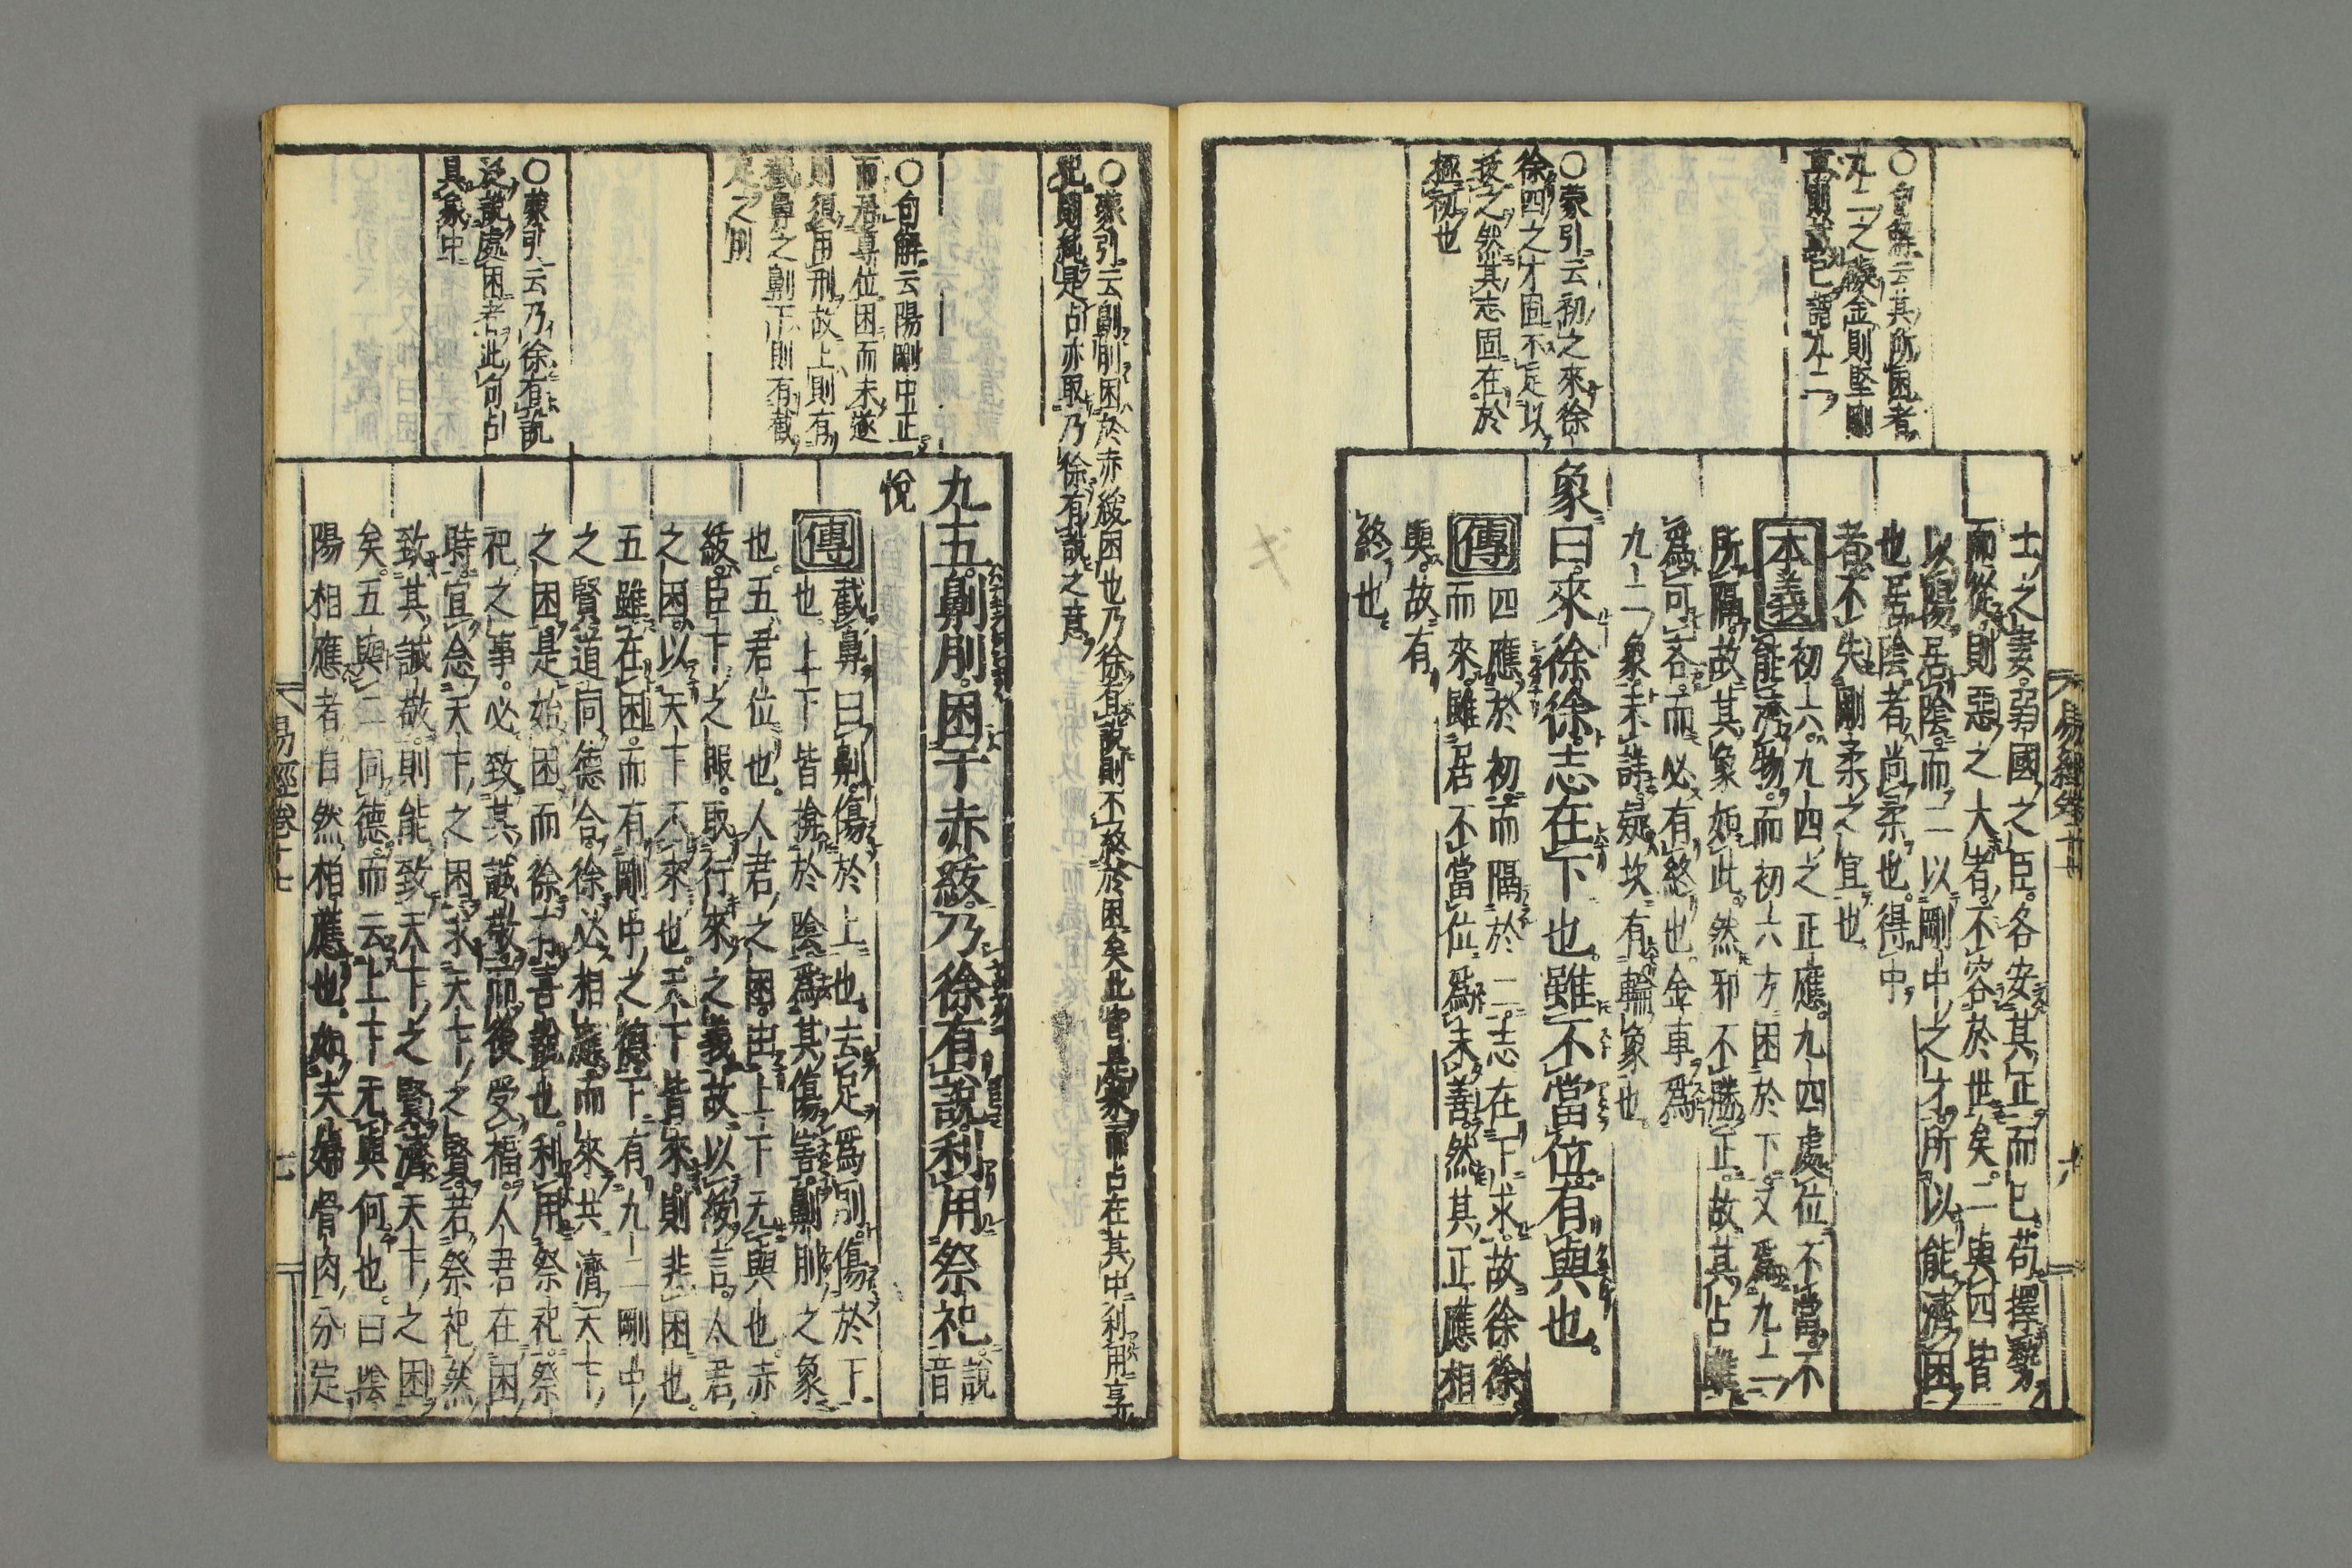 〇句解云其所困者
九二之故金則堅剛
士之妻弱國之臣各安其正而已苟擇勢
而從則惡之大者不容於世矣二與四皆
以陽居陰而二以剛中之才所以能濟困
也居陰者尚柔也得中
者不失剛柔之宜也
本義
初六九四之正應九四處位不當不
能濟物而初六方困於下又爲九二
所隔故其象如此然邪不勝正故其占雖
爲可吝而必有終也金車爲
九二象未詳疑坎有輪象也
〇蒙引云初之來徐
徐四之才固不足以
拔之然其志固在於
極初也
象曰來徐徐志在下也雖不當位有與也
傳
四應於初而隔於二志在下求故徐徐
而來雖居不當位爲未善然其正應相
與故有
終也
易經卷十七
六
〇蒙引云劓刖困於赤紱困也乃徐有說則不終於困矣此皆是象而占在其中利用享
祀則純是占亦取乃徐有說之意
九五劓刖困于赤紱乃徐有說利用祭祀
說音
悅
〇句解云陽剛中正
而居尊位困而未遂
則須用刑故上則有
截鼻之劓下則有截
足之刖
傳
截鼻曰劓傷於上也去足爲刖傷於下
也上下皆揜於陰爲其傷害劓刖之象
也五君位也人君之困由上下无與也赤
紱臣下之服取行來之義故以紱言人君
之困以天下不來也天下皆來則非困也
五雖在困而有剛中之德下有九二剛中
之賢道同德合徐必相應而來共濟天下
之困是始困而徐有喜說也利用祭祀祭
祀之事必致其誠敬而後受福人君在困
時宜念天下之困求天下之賢若祭祀然
致其誠敬則能致天下之賢濟天下之困
矣五與二同德而云上下无與何也曰陰
陽相應者自然相應也如夫婦骨肉分定
〇蒙引云乃徐有說
泛說處困者此句占
具象中
易經卷十七
七